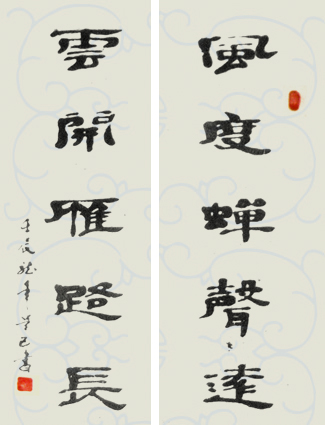 風度蟬聲遠
雲開雁路長
壬辰龍年